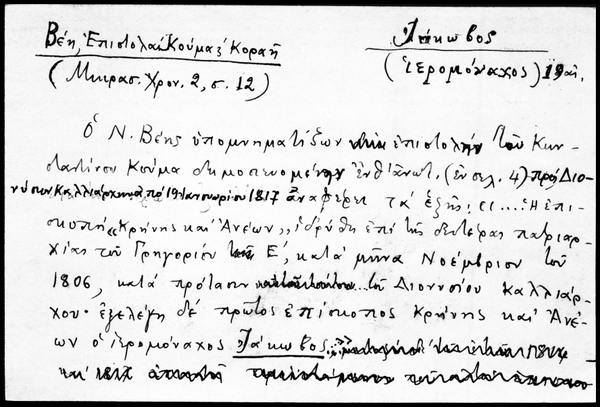 Βέη, Ἐπιστολαὶ Κούμα & Κοραῆ
Ἰάκωβος
(Μικρασ. Χρον. 2, σ. 12)
(ἱερομόναχος) 19 αἰ.
Ὁ Ν. Βέης ὑπομνηματίζων ἐπιστολὴν τοῦ Κων-
σταντίνου Κούμα δημοσιευομένην ἐνθ' ἀνωτ. (ἐν σελ. 4) πρὸς Διο-
νύσιον Καλλιάρχην ἀπὸ 19 Ἰανουαρίου 1817 ἀναφέρει τὰ ἑξῆς: « ... Ἡ ἐπι-
σκοπὴ «Κρήνης καὶ Ἀνέων» ἱδρύθη ἐπὶ τῆς δευτέρας πατριαρ-
χίας τοῦ Γρηγορίου Ε', κατὰ μῆνα Νοέμβριον τοῦ
1806, κατὰ πρότασιν ... τοῦ Διονυσίου Καλλιάρ-
χου· ἐξελέγη δὲ πρῶτος ἐπίσκοπος Κρήνης καὶ Ἀνέ-
ων ὁ ἱερομόναχος Ἰάκωβος
καὶ 1817